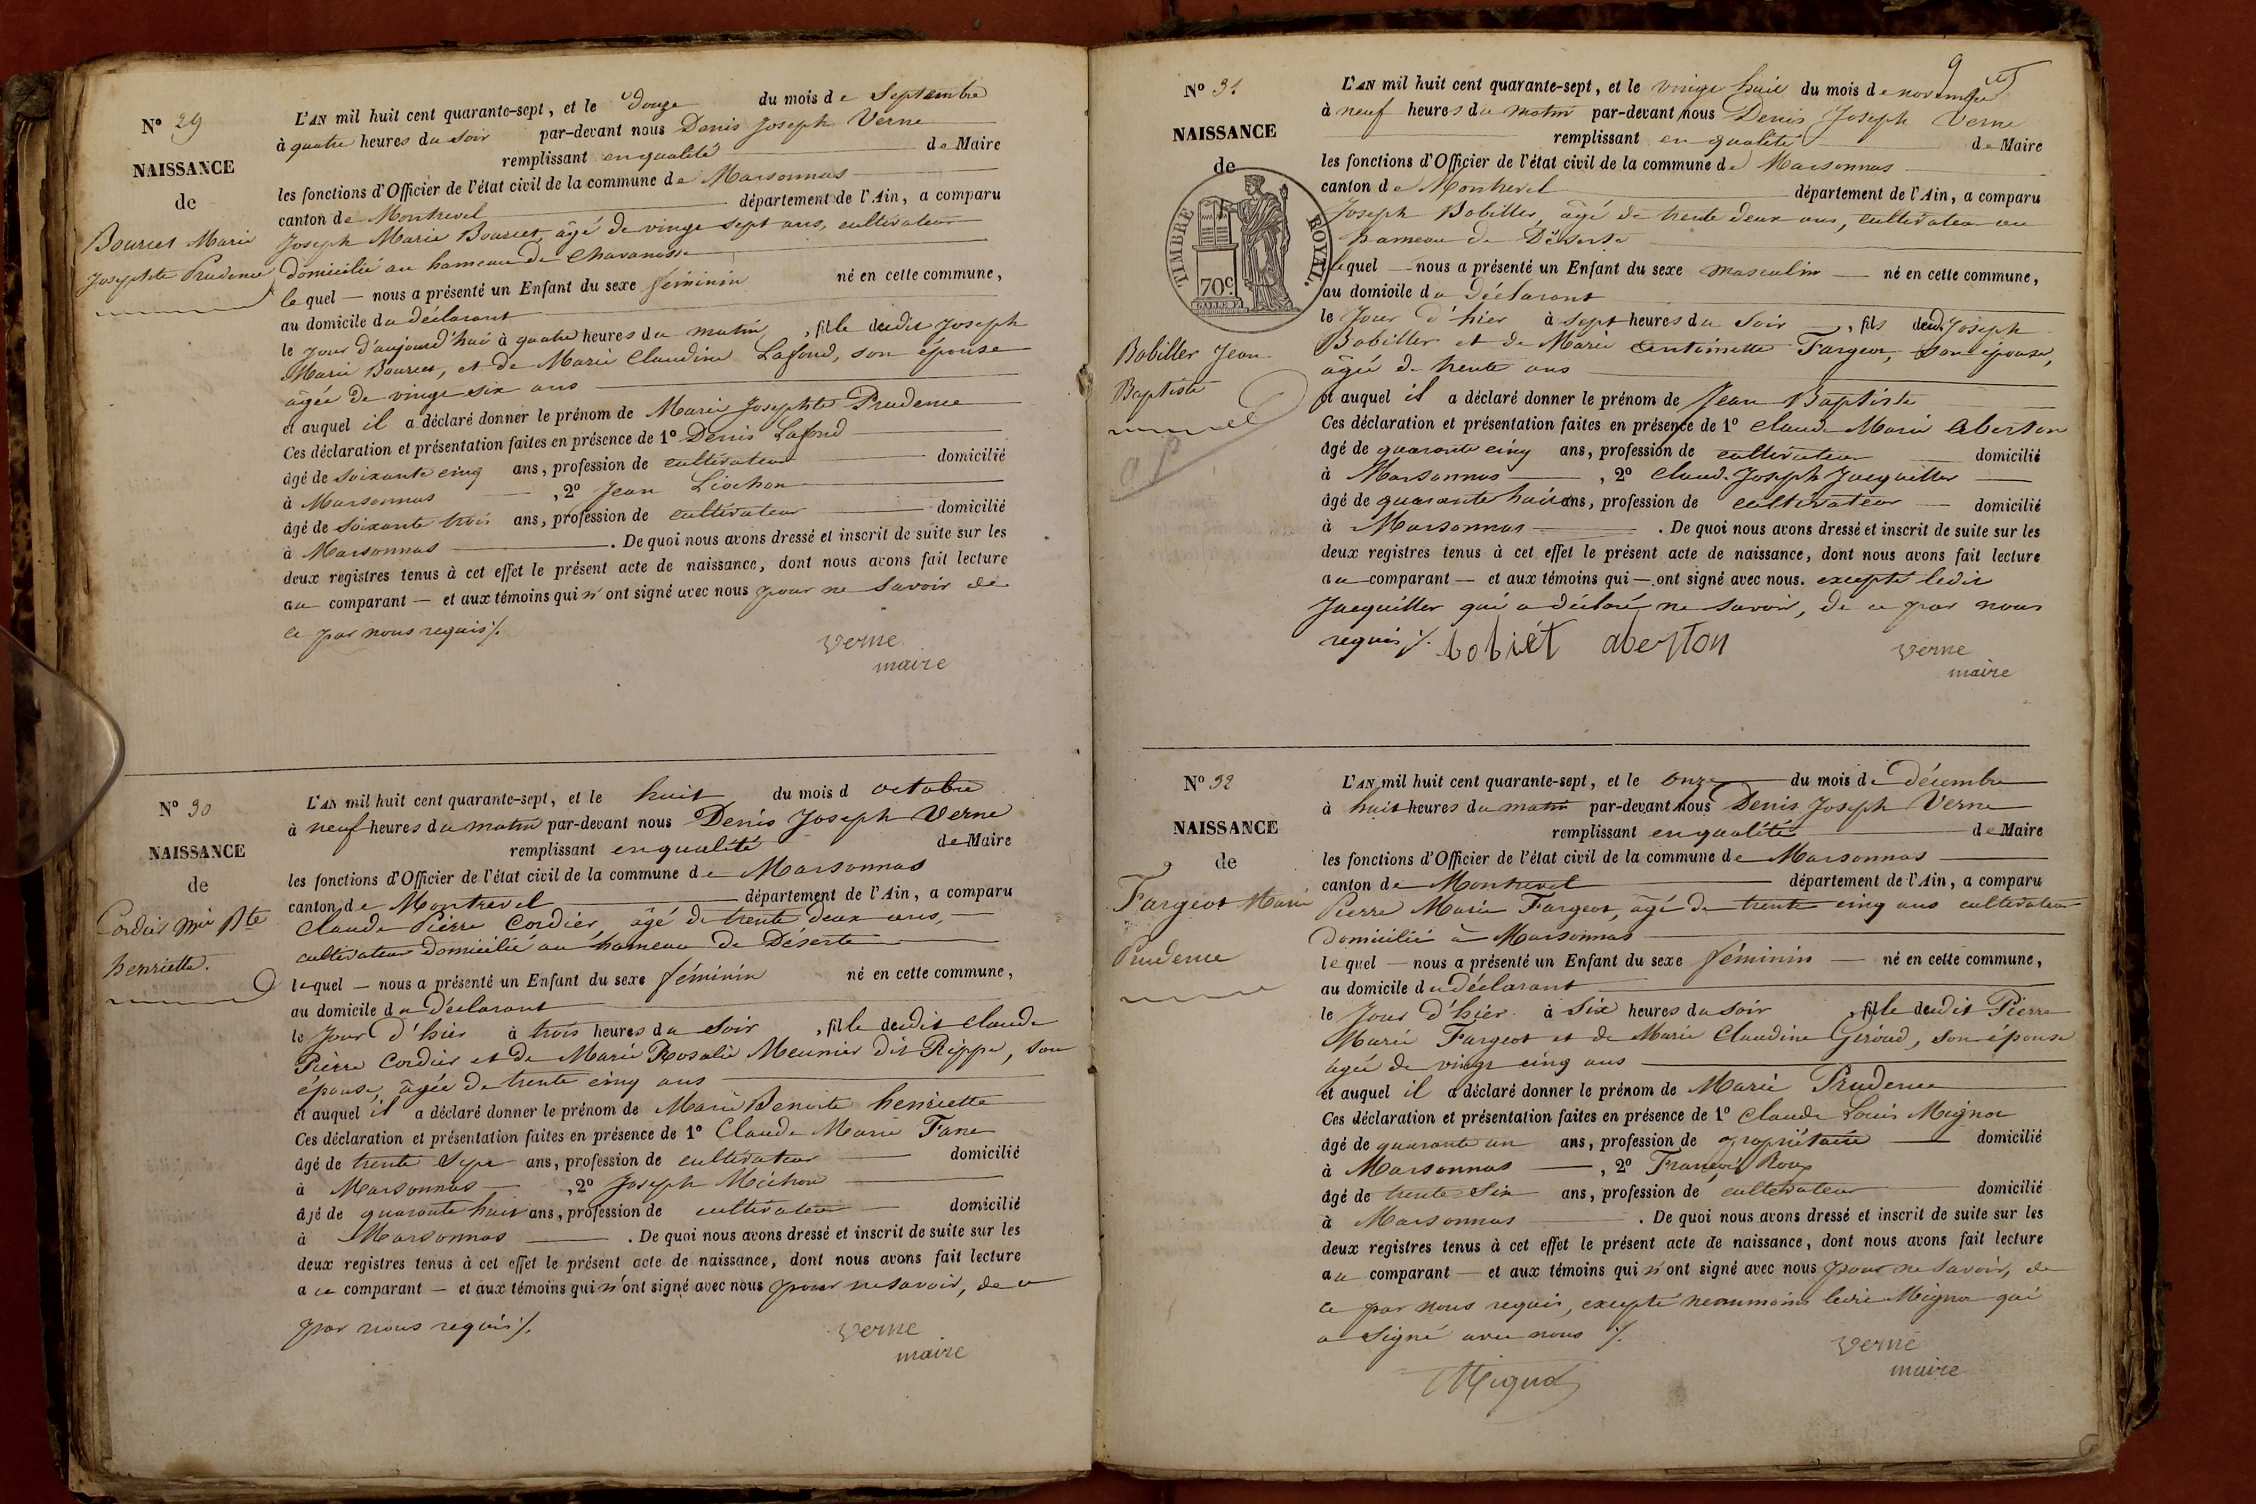 N° 29
NAISSANCE
de
Bourcet Marie
Josephte Prudence
L'AN mil huit cent quarante-sept, et le douze du mois de Septembre
à quatre heures du soir par-devant nous Denis Joseph Verne
remplissant en qualité de Maire
les fonctions d'Officier de l'état civil de la commune de Marsonnas
canton de Montrevel département de l'Ain, a comparu
Joseph Marie Bourcet, âgé de vingt sept ans, cultivateur
domicilié au hameau de Chavanosse
lequel nous a présenté un Enfant du sexe féminin né en cette commune,
au domicile du déclarant
le Jour d'aujourd'hui à quatre heures du matin, fille dudit Joseph
Marie Bourcet, et de Marie Claudine Lafond, son épouse
âgée de vingt six ans
et auquel il a déclaré donner le prénom de Marie Josephte Prudence
Ces déclaration et présentation faites en présence de 1° Denis Lafond
âgé de soixante cinq ans, profession de cultivateur domicilié
à Marsonnas, 2° Jean Liochon
âgé de soixante trois ans, profession de cultivateur domicilié
à Marsonnas. De quoi nous avons dressé et inscrit de suite sur les
deux registres tenus à cet effet le présent acte de naissance, dont nous avons fait lecture
au comparant et aux témoins qui n'ont signé avec nous pour ne savoir de
ce par nous requis /.
verne
maire
N° 30
NAISSANCE
de
Cordier Mie Bte
henriette.
L'AN mil huit cent quarante-sept, et le huit du mois d octobre
à neuf heures du matin par-devant nous Denis Joseph Verne
remplissant en qualité de Maire
les fonctions d'Officier de l'état civil de la commune de Marsonnas
canton de Montrevel département de l'Ain, a comparu
Claude Pierre Cordier, âgé de trente deux ans,
cultivateur domicilié au hameau de Déserte
lequel nous a présenté un Enfant du sexe féminin né en cette commune,
au domicile du déclarant
le Jour d'hier à trois heures du soir, fille dudit Claude
Pierre Cordier et de Marie Rosalie Meunier dit Rippe, son
épouse, âgée de trente cinq ans
et auquel il a déclaré donner le prénom de Marie Benoite henriette
Ces déclaration et présentation faites en présence de 1° Claude Marie
âgé de trente sept ans, profession de cultivateur domicilié
à Marsonnas, 2° Joseph Michon
âgé de quarante huit ans, profession de cultivateur domicilié
à Marsonnas. De quoi nous avons dressé et inscrit de suite sur les
deux registres tenus à cet effet le présent acte de naissance, dont nous avons fait lecture
au comparant et aux témoins qui n'ont signé avec nous pour ne savoir, de ce
par nous requis /.
verne
maire
9
N° 31
NAISSANCE
de
TIMBRE ROYAL.
70c
Bobiller Jean
Baptiste
L'AN mil huit cent quarante-sept, et le vingt huit du mois de novembre
à neuf heures du matin par-devant nous Denis Joseph Verne
remplissant en qualité de Maire
les fonctions d'Officier de l'état civil de la commune de Marsonnas
canton de Montrevel département de l'Ain, a comparu
Joseph Bobiller, âgé de trente deux ans, cultivateur au
hameau de Déserte
lequel nous a présenté un Enfant du sexe masculin né en cette commune,
au domicile du déclarant
le Jour d'hier à sept heures du soir, fils dud. Joseph
Bobiller et de Marie Antoinette Fargeot, son épouse,
âgée de trente ans
et auquel il a déclaré donner le prénom de Jean Baptiste
Ces déclaration et présentation faites en présence de 1° Claude Marie Aberton
âgé de quarante cinq ans, profession de cultivateur domicilié
à Marsonnas, 2° Claude Joseph Jacquiller
âgé de quarante huit ans, profession de cultivateur domicilié
à Marsonnas. De quoi nous avons dressé et inscrit de suite sur les
deux registres tenus à cet effet le présent acte de naissance, dont nous avons fait lecture
au comparant et aux témoins qui ont signé avec nous. excepté ledit
Jacquiller qui a déclaré ne savoir, de ce par nous
requis /. bobiet aberton
verne
maire
N° 32
NAISSANCE
de
Fargeot Marie
Prudence
L'AN mil huit cent quarante-sept, et le onze du mois de Décembre
à huit heures du matin par-devant nous Denis Joseph Verne
remplissant en qualité de Maire
les fonctions d'Officier de l'état civil de la commune de Marsonnas
canton de Montrevel département de l'Ain, a comparu
Pierre Marie Fargeot, âgé de trente cinq ans cultivateur
domicilié à Marsonnas
lequel nous a présenté un Enfant du sexe féminin né en cette commune,
au domicile du déclarant
le Jour d'hier à six heures du soir, fille dudit Pierre
Marie Fargeot et de Marie Claudine Giroud, son épouse
âgée de vingt cinq ans
et auquel il a déclaré donner le prénom de Marie Prudence
Ces déclaration et présentation faites en présence de 1° Claude Louis Mignot
âgé de quarante un ans, profession de propriétaire domicilié
à Marsonnas, 2° François Roux
âgé de trente six ans, profession de cultivateur domicilié
à Marsonnas. De quoi nous avons dressé et inscrit de suite sur les
deux registres tenus à cet effet le présent acte de naissance, dont nous avons fait lecture
au comparant et aux témoins qui n'ont signé avec nous pour ne savoir, de
ce par nous requis, excepté néanmoins ledit Mignot qui
a signé avec nous /.
Mignot
verne
maire